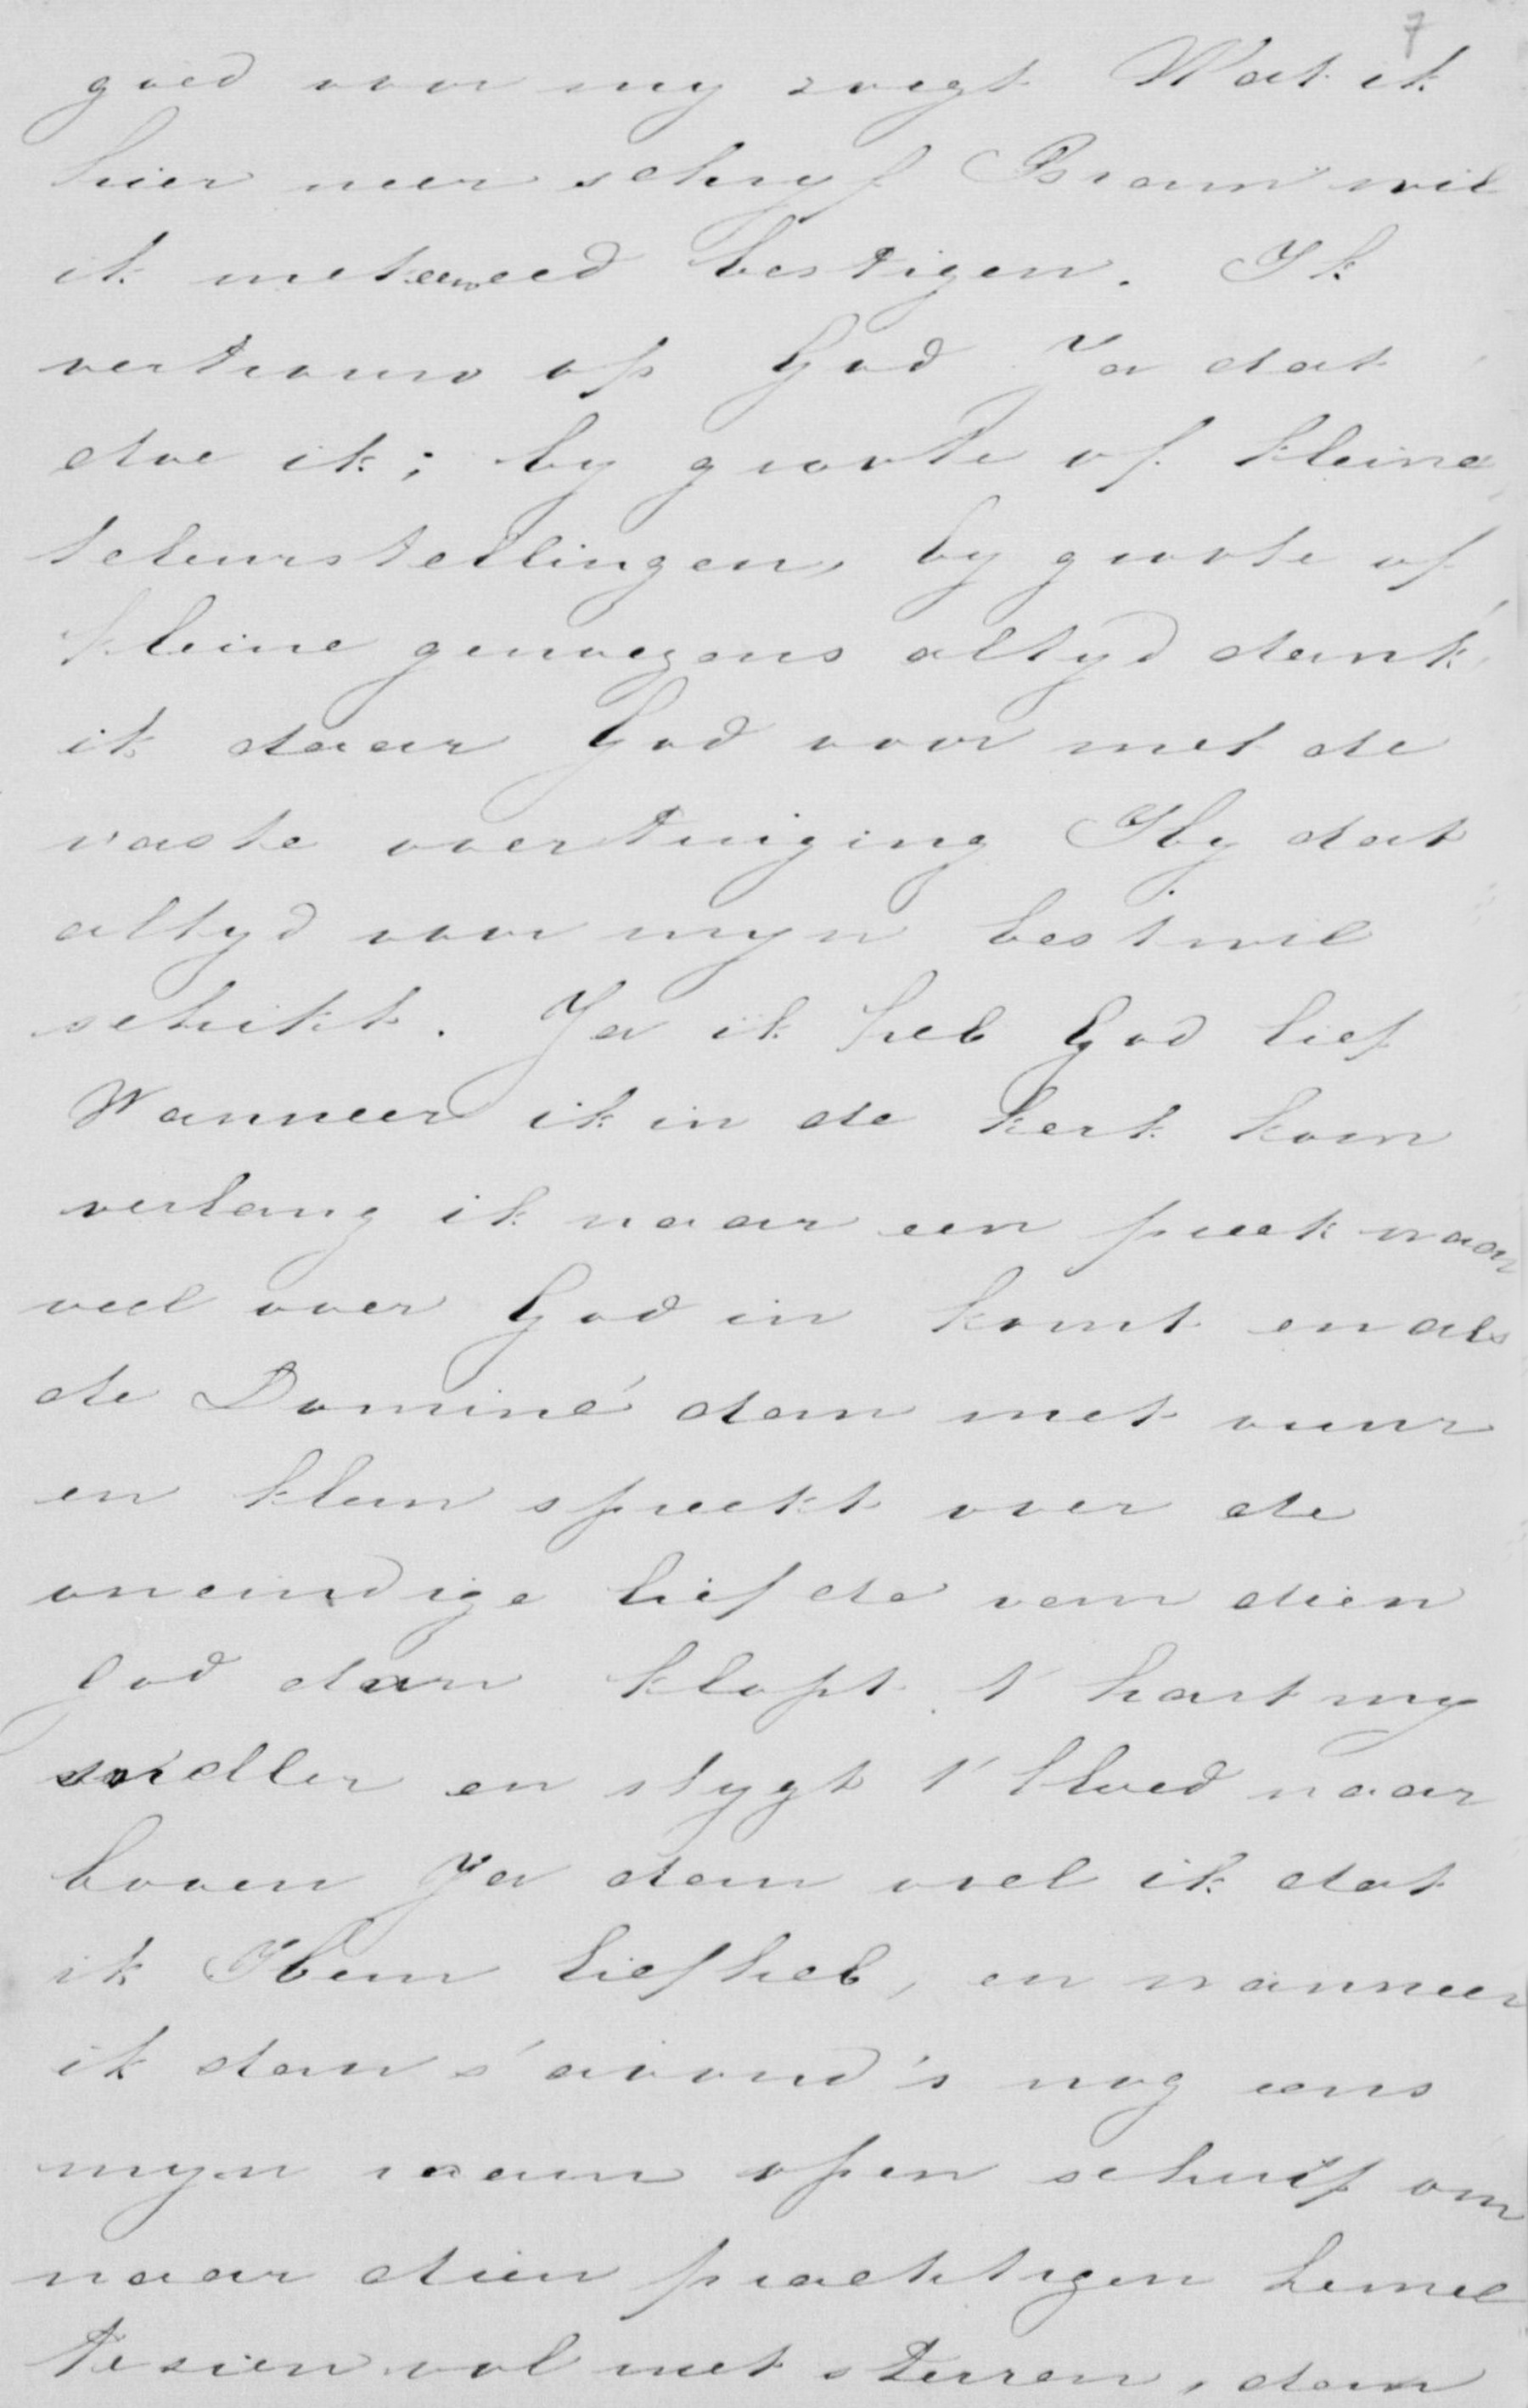 7
goed voor my zorgt Wat ik
hier neer schryf Bram wil
ik met een eed bestigen. Ik
vertrouw op God Ja dat
doe ik; by groote of kleine
teleurstellingen, by groote of
kleine genoegens altyd dank
ik daar God voor met de
vaste overtuiging Hy dat
altyd voor myn bestwil
schikt. Ja ik heb God lief
Wanneer ik in de kerk kom
verlang ik naar een preek waar
veel over God in komt en als
de Dominé dan met vuur
en klem spreekt over de
oneindige liefde van dien
God dan klopt t' hart my
sneller en stygt t' bloed naar
boven Ja dan voel ik dat
ik Hem liefheb, en wanneer
ik dan s'avond's nog eens
myn raam open schuif om
naar dien prachtigen hemel
te zien vol met sterren, dan